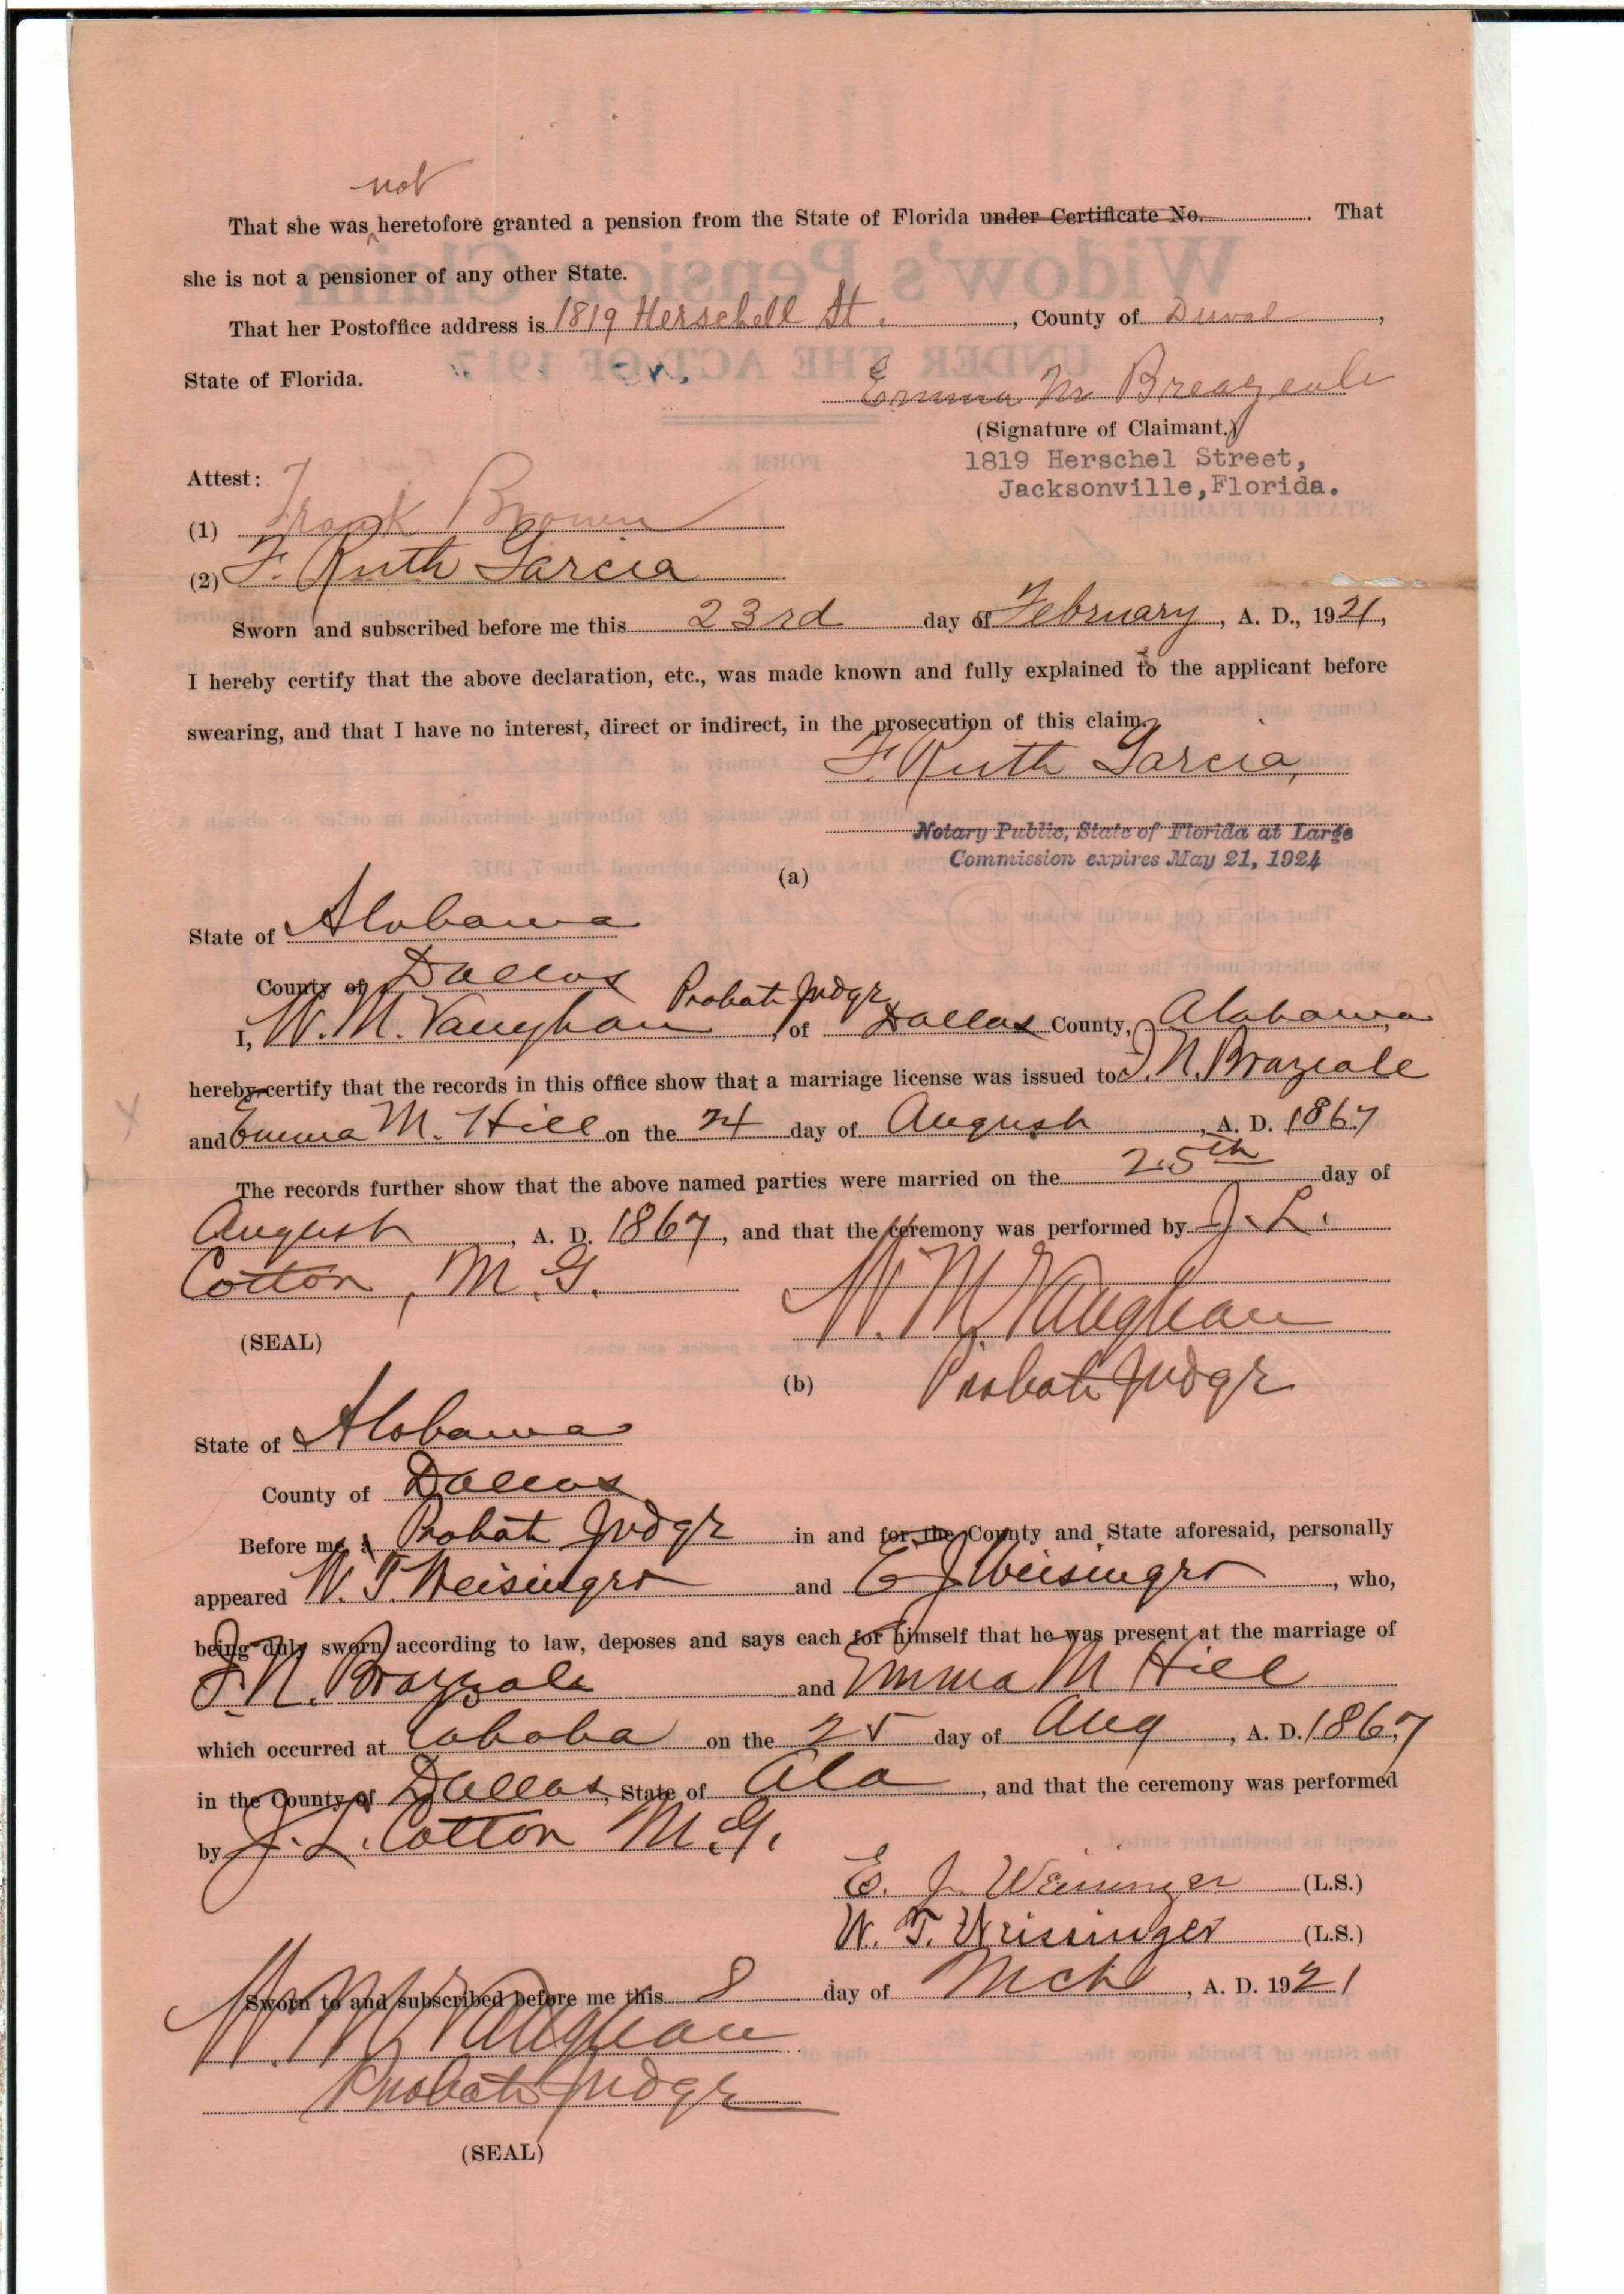 not
That she was heretofore granted a pension from the State of Florida under Certificate No. That
she is not a pensioner of any other State.
That her Postoffice address is 1819 Herschell St. , County of Duval ,
State of Florida.
Emma M Breazeale
(Signature of Claimant.)
1819 Herschel Street,
Jacksonville, Florida.
Attest:
(1) Frank Brown
(2) F. Ruth Garcia
Sworn and subscribed before me this 23rd day of February , A. D., 1921,
I hereby certify that the above declaration, etc., was made known and fully explained to the applicant before
swearing, and that I have no interest, direct or indirect, in the prosecution of this claim.
F. Ruth Garcia,
Notary Public, State of Florida at Large
Commission expires May 21, 1924
(a)
State of Alabama
County of Dallas
Probate Judge
I, W. M. Vaughan , of Dallas County, Alabama
hereby certify that the records in this office show that a marriage license was issued to J. N. Brazeale
and Emma M. Hill on the 24 day of August , A. D. 1867
The records further show that the above named parties were married on the 25th day of
August , A. D. 1867 , and that the ceremony was performed by J. L.
Cotton, M. G.
W. M. Vaughan
(SEAL)
Probate Judge
(b)
State of Alabama
County of Dallas
Before me, a Probate Judge in and for the County and State aforesaid, personally
appeared W. T. Weisinger and E J Weisinger , who,
being duly sworn according to law, deposes and says each for himself that he was present at the marriage of
J. N. Brazeale and Emma M Hill
which occurred at Cahaba on the 25 day of Aug , A. D. 1867
in the County of Dallas, State of Ala , and that the ceremony was performed
by J. L. Cotton M. G.
E. J. Weissinger (L.S.)
W. T. Weissinger (L.S.)
Sworn to and subscribed before me this 8 day of Mch , A. D. 1921
W. M. Vaughan
Probate Judge
(SEAL)